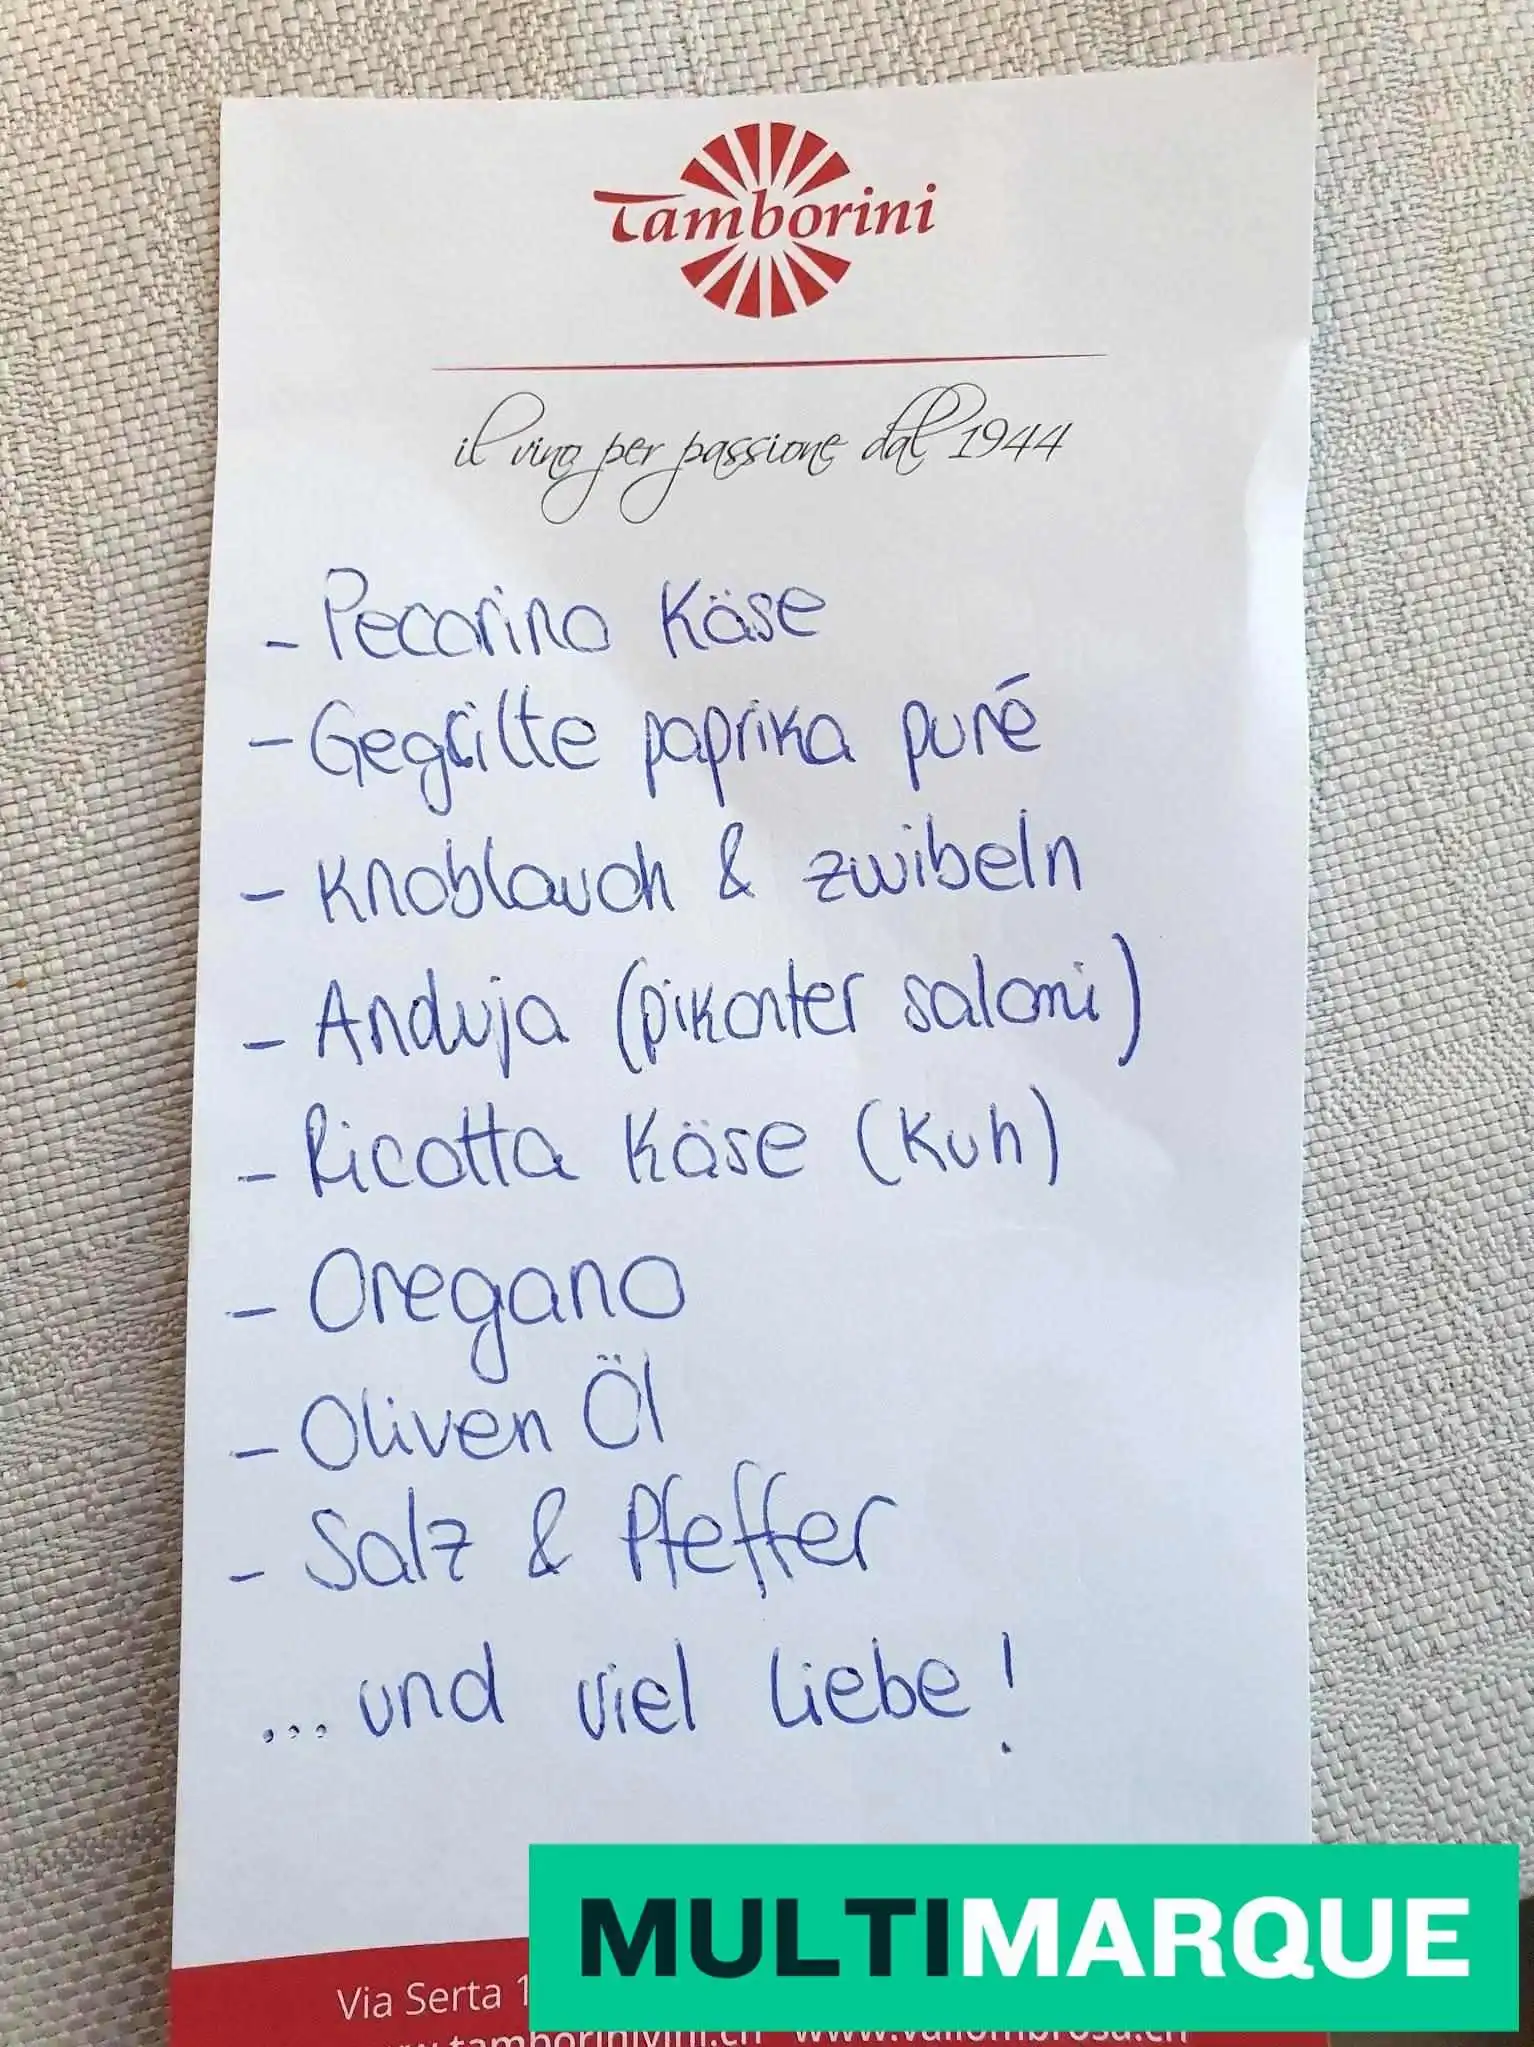 Tamborini
il vino per passione dal 1944
- Pecorino Käse
- Gegrilte paprika puré
- Knoblauch & zwibeln
- Anduja (pikanter salami)
- Ricotta Käse (Kuh)
- Oregano
- Oliven Öl
- Salz & Pfeffer
... und viel Liebe!
MULTIMARQUE
Via Serta 1
www.tamborinivini.ch www.vallombrosa.ch